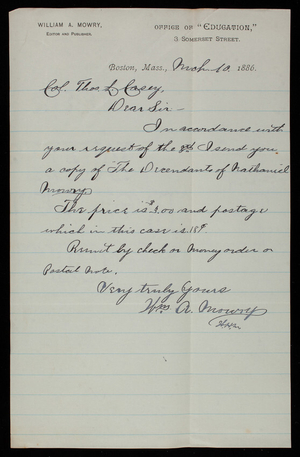 WILLIAM A. MOWRY,
EDITOR AND PUBLISHER.
OFFICE OF "EDUCATION,"
3 SOMERSET STREET.
Boston, Mass., Mch 10 1886.
Col. Thos L Casey,
Dear Sir—
In accordance with
your request of the 8th I send you
a copy of The Decendants of Nathaniel
Mowry.
The price is $3.00 and postage
which in this case is 18¢.
Remit by check or Money order or
Postal Note.
Very truly Yours
Wm. A. Mowry